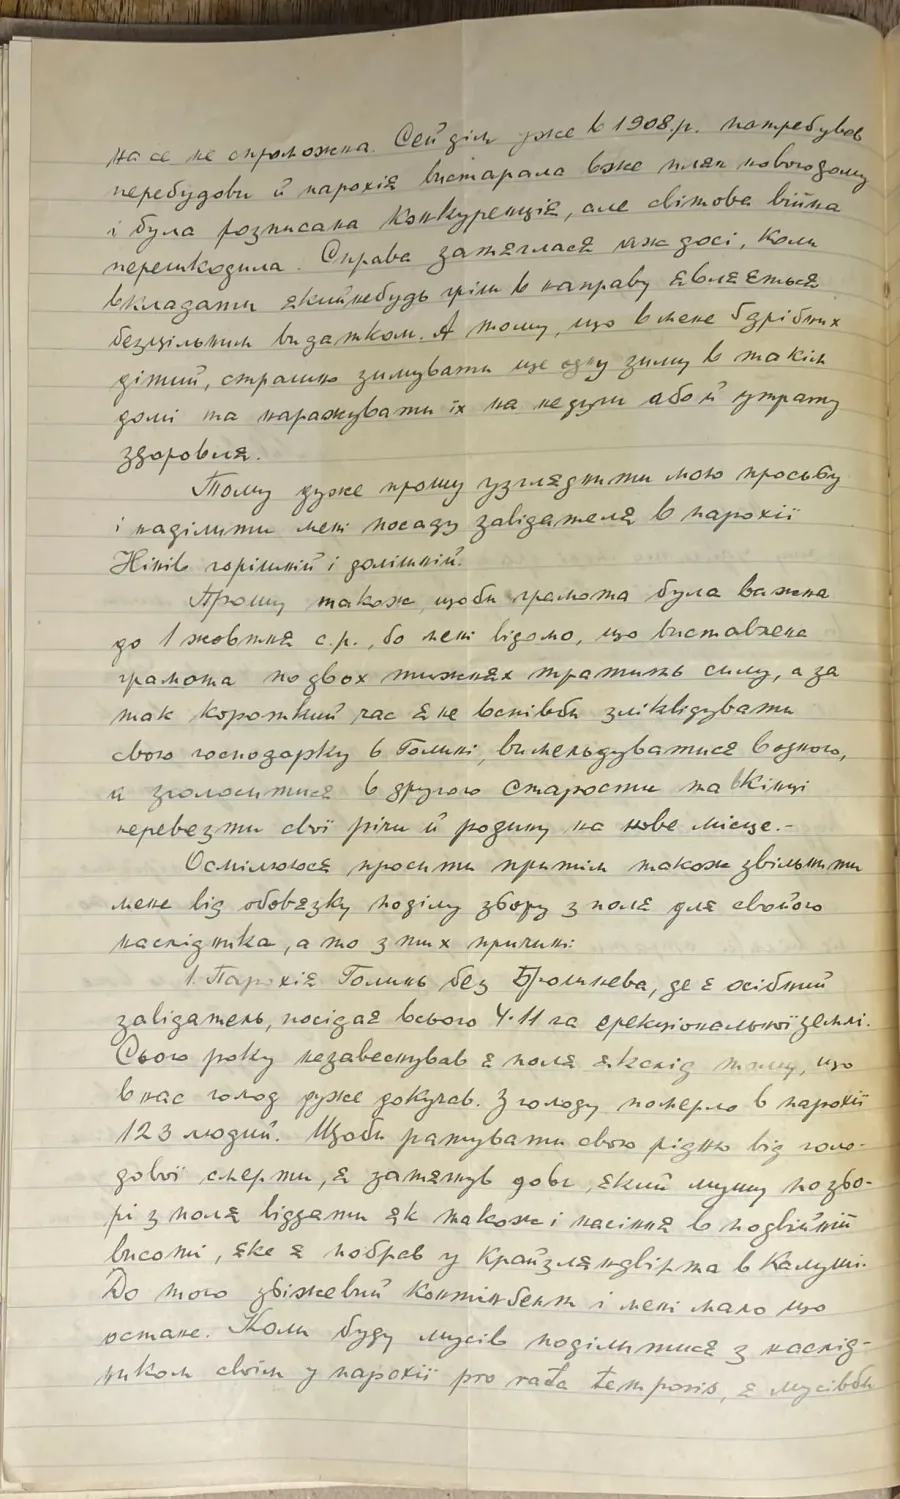 на се не спроможна. Сей дім уже в 1908 р. потребував
перебудови й парохія вистарала вже плян нового дому
і була розписана конкуренція, але світова війна
перешкодила. Справа затяглася аж досі, коли
вкладати який небудь гріш в направу являється
безцільним видатком. А тому, що в мене 6 дрібних
дітий, страшно зимувати ще одну зиму в такім
домі та наражувати їх на недуги або й утрату
здоровля.
Тому дуже прошу узгляднити мою просьбу
і наділити мені посаду завідателя в парохії
Нінів горішний і долішний.
Прошу також, щоби грамота була важна
до 1 жовтня с.р., бо мені відомо, що виставлена
грамота по двох тижнях тратить силу, а за
так короткий час я не вспівби зліквідувати
свою господарку в Голині, вимельдуватися в одного,
а зголоситися в другого старости та вкінці
перевезти свої річи й родину на нове місце.-
Осмілююся просити притім також звільнити
мене від обовязку поділу збору з поля для свойого
наслідника, а то з тих причин:
1. Парохія Голинь без Брошнева, де є осібний
завідатель, посідає всього 4·11 га ерекціональної землі.
Сього року незавеснував я поля якслід тому, що
в нас голод дуже докучав. З голоду померло в парохії
123 людий. Щоби ратувати свою рідню від голо-
дової смерти, я затягнув довг, який мушу по збо-
рі з поля віддати як також і насіння в подвійній
висоті, яке я побрав у Крайзляндвірта в Калуші.
До того збіжевий контінґент і мені мало що
остане. Коли буду мусів поділитися з наслід-
ником своїм у парохії pro rata temporis, я мусівби